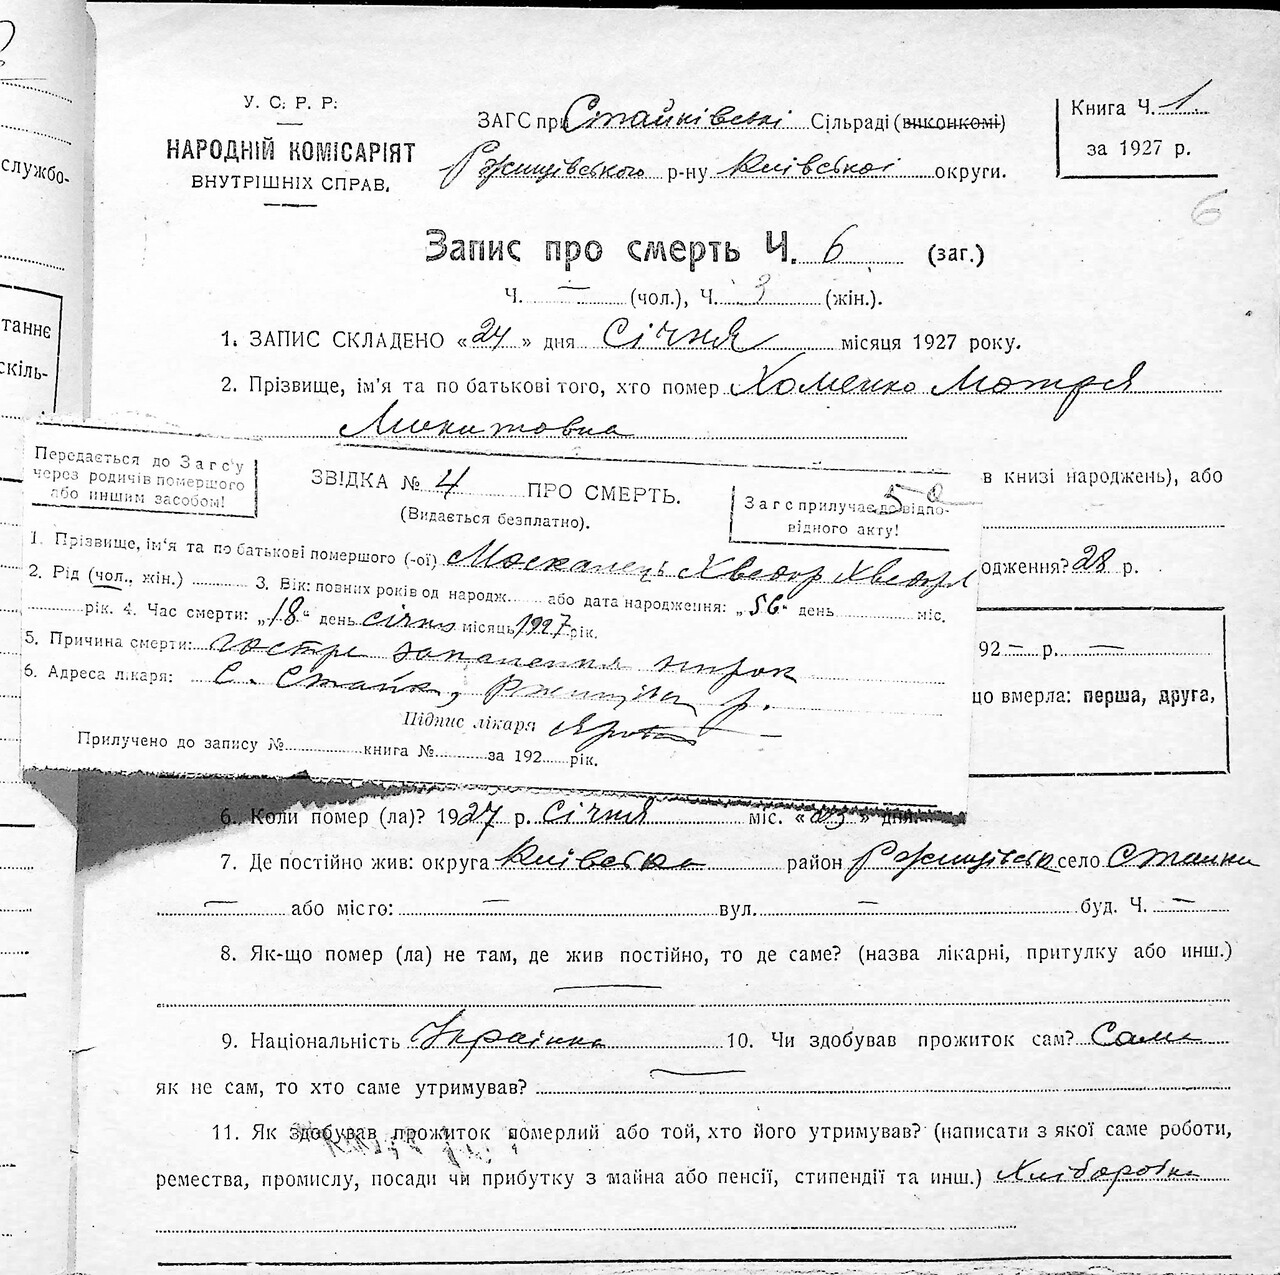 службо-
таннє
скіль-
У. С. Р. Р.
НАРОДНІЙ КОМІСАРІЯТ
ВНУТРІШНІХ СПРАВ.
ЗАГС при Стайківські Сільраді (виконкомі)
Ржищівського р-ну Київської округи.
Книга Ч. 1.
за 1927 р.
6
Запис про смерть Ч. 6 (заг.)
Ч. — (чол.), Ч. 3 (жін.).
1. ЗАПИС СКЛАДЕНО «24» дня Січня місяця 1927 року.
2. Прізвище, ім'я та по батькові того, хто помер Хоменко Мотря
Микитовна
в книзі народжень), або
одження? 28 р.
92 — р. —
що вмерла: перша, друга,
Передається до Загс'у
через родичів помершого
або иншим засобом!
ЗВІДКА № 4 ПРО СМЕРТЬ.
(Видається безплатно).
5а
Загс прилучає до відпо-
відного акту!
1. Прізвище, ім'я та по батькові помершого (-ої) Москалець Хведор Хведор
2. Рід (чол., жін.) 3. Вік: повних років од народж. або дата народження: „56“ день міс.
рік. 4. Час смерти: „18“ день січня місяць 1927 рік.
5. Причина смерти: гостре запалення нирок
6. Адреса лікаря: с. Стайки, Ржищів р.
Підпис лікаря
Прилучено до запису № книга № за 192 рік.
6. Коли помер (ла)? 1927 р. січня міс. «23» дня.
7. Де постійно жив: округа Київська район Ржищівськ село Стайки
— або місто: — вул. — буд. Ч. —
8. Як-що помер (ла) не там, де жив постійно, то де саме? (назва лікарні, притулку або инш.)
—
9. Національність Українка 10. Чи здобував прожиток сам? Сама
як не сам, то хто саме утримував? —
11. Як здобував прожиток померлий або той, хто його утримував? (написати з якої саме роботи,
ремества, промислу, посади чи прибутку з майна або пенсії, стипендії та инш.) Хліборобка